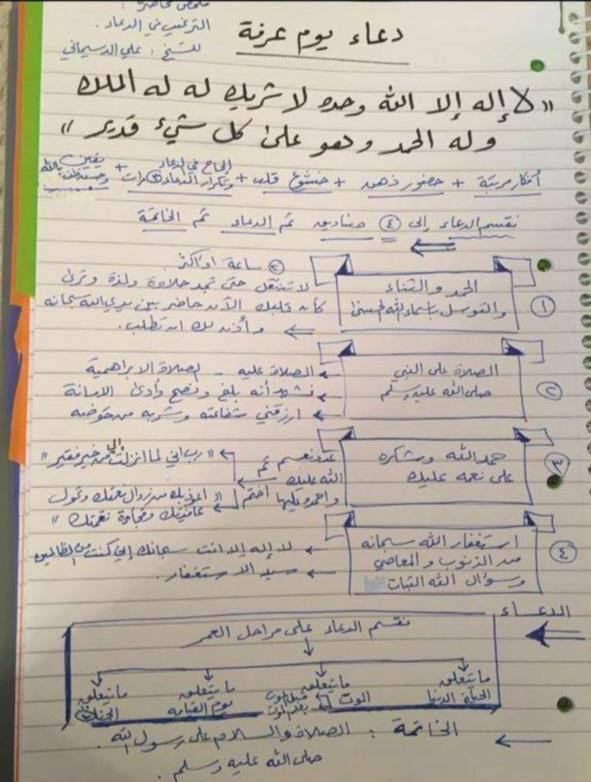 ملخص محاضرة :
الترغيب في الدعاء .
للشيخ : علي
دعاء يوم عرفة
" لا إله إلا الله وحده لا شريك له له الملك
وله الحمد وهو على كل شيء قدير "
أفكار مرتبة + حضور ذهن + خشوع قلب + إلحاح في الدعاء وتكرار الدعاء ٣ مرات + يقين بالله
نقسم الدعاء إلى ٤ صناديق ثم الدعاء ثم الخاتمة
١
الحمد والثناء
والتوسل بأسماء الله الحسنى
ساعة أو أكثر
لا تنتقل حتى تجد حلاوة ولذة وترى
كأن قلبك الآن حاضر بين يدي الله سبحانه
وأذن لك أن تطلب .
٢
الصلاة على النبي
صلى الله عليه وسلم
الصلاة عليه - الصلاة الابراهيمية
نشهد أنه بلغ ونصح وأدى الامانة
ارزقني شفاعته وشربه من حوضه
٣
حمد الله وشكره
على نعمه عليك
عدد نعم
الله عليك ثم
واحمده عليها أختم
" رب إني لما أنزلت إلي من خير فقير "
" أعوذ بك من زوال نعمتك وتحول
عافيتك وفجاءة نقمتك "
٤
استغفار الله سبحانه
من الذنوب والمعاصي
وسؤال الله الثبات
لا إله إلا أنت سبحانك إني كنت من الظالمين
سيد الاستغفار .
الدعـــاء
نقسم الدعاء على مراحل العمر
ما يتعلق الحياة الدنيا
ما يتعلق الموت قبل الموت بعد الموت
ما يتعلق يوم القيامة
ما يتعلق الجنة
الخاتمة : الصلاة والسلام على رسول الله .
صلى الله عليه وسلم .